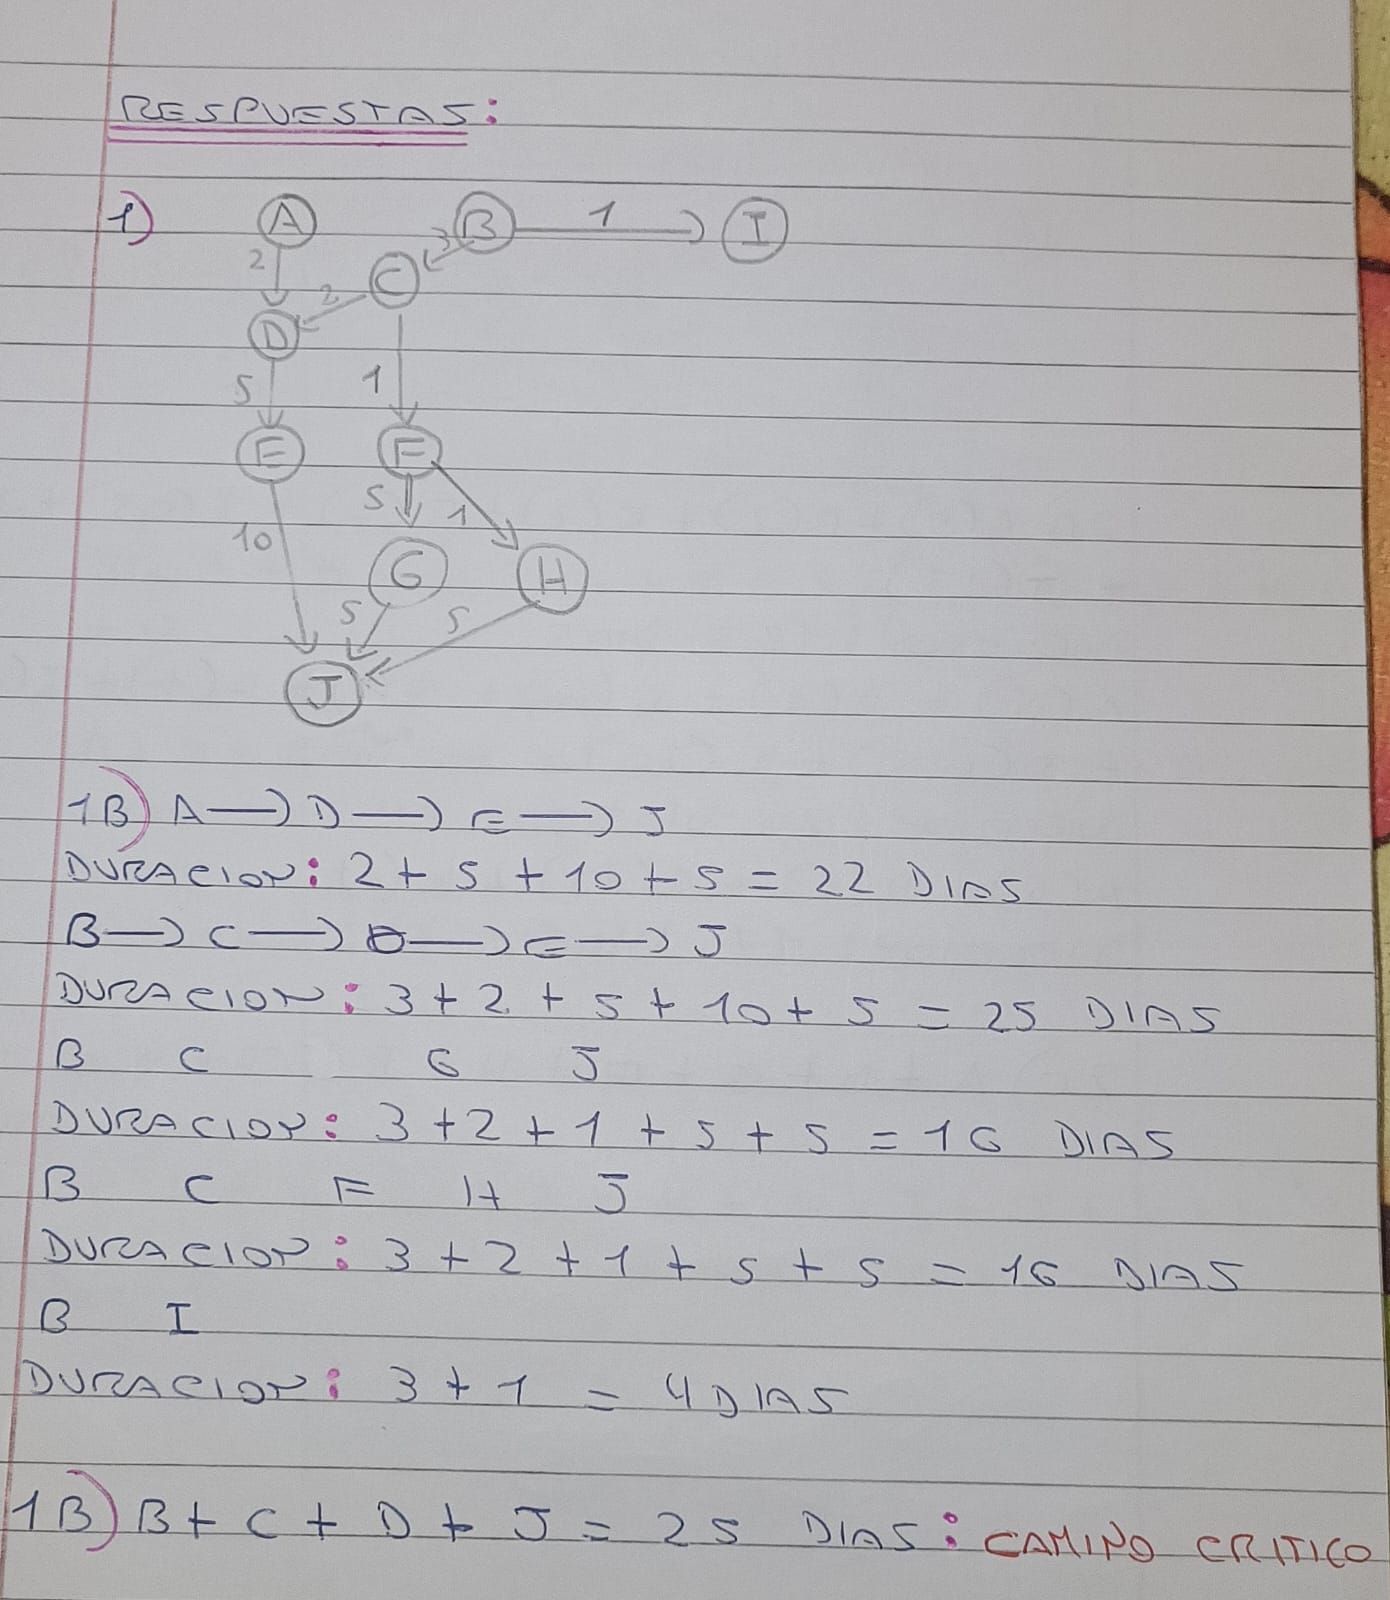 RESPUESTAS:
1) A B 1 I
3
2 C
2
D
5 1
E F
5 1
10
G H
5 5
J
1B) A → D → E → J
DURACION: 2 + 5 + 10 + 5 = 22 DIAS
B → C → D → E → J
DURACION: 3 + 2 + 5 + 10 + 5 = 25 DIAS
B C G J
DURACION: 3 + 2 + 1 + 5 + 5 = 16 DIAS
B C F H J
DURACION: 3 + 2 + 1 + 5 + 5 = 16 DIAS
B I
DURACION: 3 + 1 = 4 DIAS
1B) B + C + D + J = 25 DIAS: CAMINO CRITICO